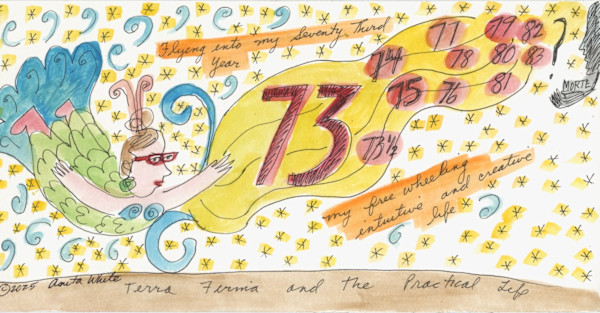 Flyeng into my Seventy Third
Year
73
73½
74
75
76
77
78
79
80
81
82
83
?
MORTE
my free wheeling
intuitive and creative
life
©2025 Anita White
Terra Ferma and the Practical Life